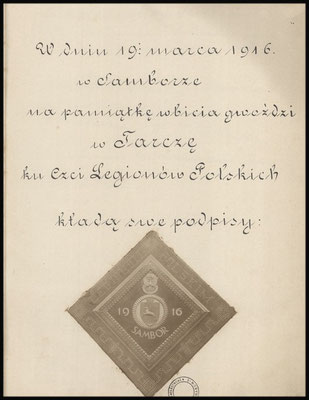 W dniu 19: marca 1916.
w Samborze
na pamiątkę wbicia gwoździ
w Tarczę
ku czci Legionów Polskich
kładą swe podpisy:
19 16
SAMBOR